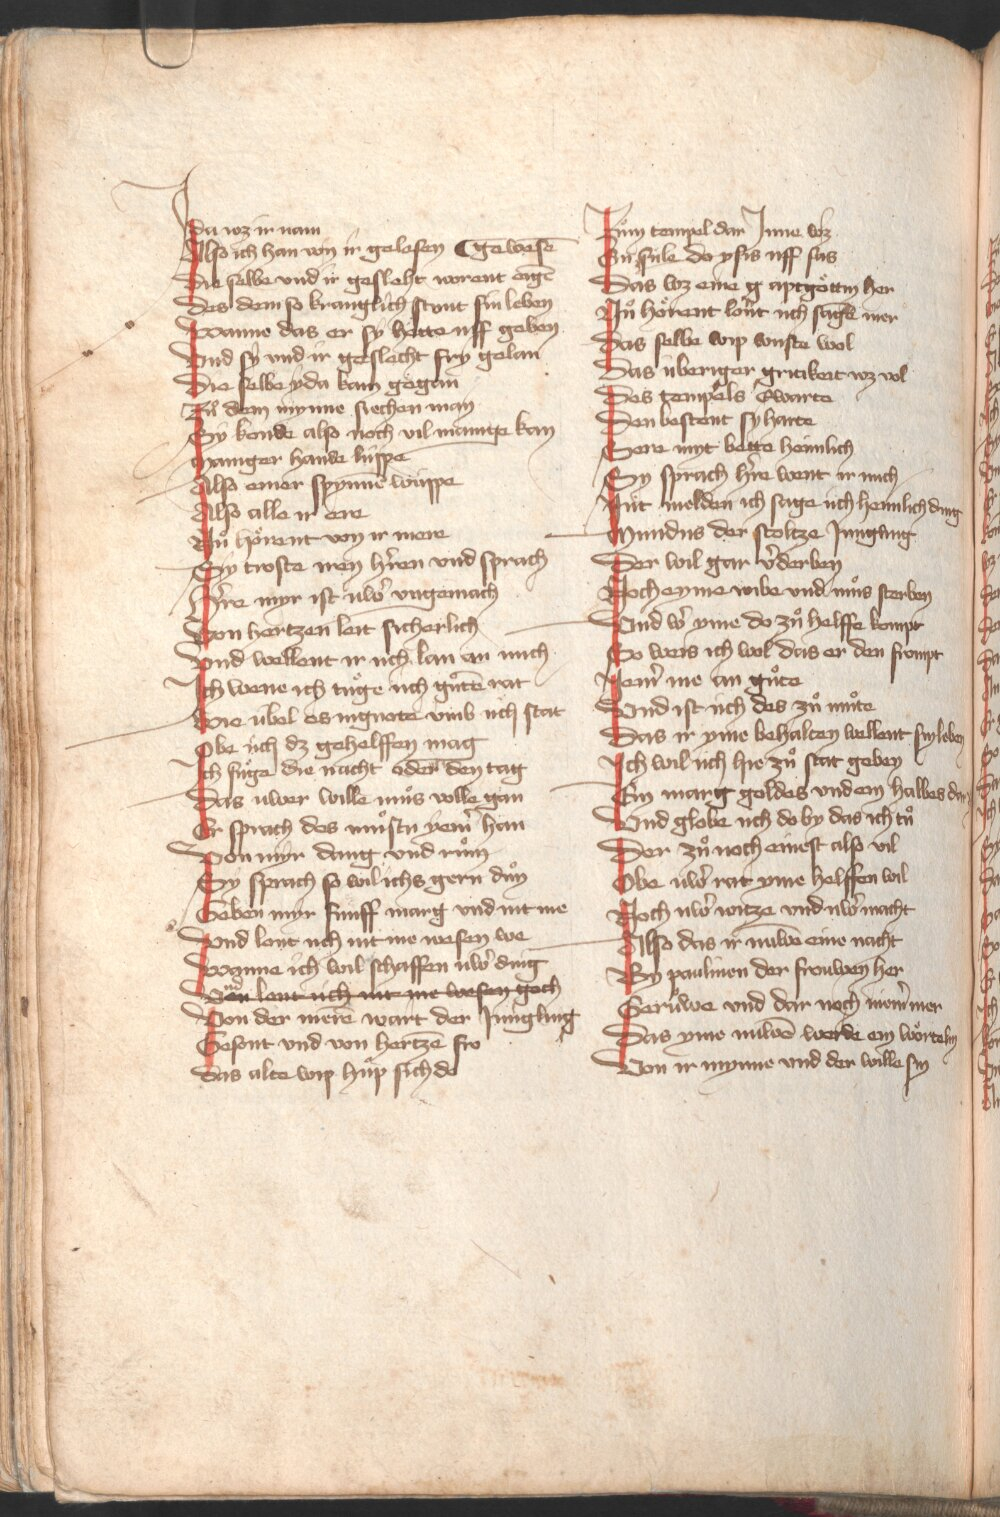 Ida wz ir nam
Also ich han von ir gelesen gewesē
Die selbe vnd ir gesleht worent eigē
Des dem so kranglich stunt sin leben
Wanne das er sy hette uff geben
Vnd sy vnd ir geslecht fry gelan
Die selbe yda kam gegan
Zů dem mynne siechen man
Sy konde also noch vil manige kan
Maniger hande lüppe
Also einer spynnē wüppe
Also alle ir ere
Nů hörent von ir mere
Sy troste iren h'ren vnd sprach
H're myr ist uw' vngemach
Von hertzen leit sicherlich
Vnd wellent ir uch lan an mich
Ich wene ich tůge uch gůtē rat
Wie übel es ingnote vmb uch stat
Obe uch dz gehelffen mag
Ich füge die nacht oder den tag
Das uwer wille můs volle gan
Er sprach des můstu yem' han
Von myr dang vnd rům
Sy sprach so wil ichs gern důn
Geben myr fünff marg vnd nit me
Vnd lont uch nit me wesen we
Wanne ich wil schaffen uw' ding
Von lont uch nit me wesen goch
Von der merē wart der Jüngling
Gesont vnd von hertzē fro
Das alte wip hůp sich do
Zům tempel dar Jnne wz
Ein sule do ysis uff sas
Das wz eine g aptgöttin her
Nů hörent lont uch sagē mer
Das selbe wip wuste wol
Das überiger gritikeit wz vol
Des tempels ewarte
Den bestont sy harte
Sere myt bette heimlich
Sy sprach h're went ir mich
Nüt melden ich sage uch heimlich ding
Mundus der stoltze Jungling
Der wil gar v'derben
Noch eyme wibe vnd můs sterben
Vnd w' yme do zů helffe kompt
So weis ich wol das er den frompt
Yem' me an gůte
Vnd ist uch des zů můte
Das ir yme behalten wellent sin leben
Ich wil uch hie zů stat geben
Ein marg goldes vnd ein halbes dar
Vnd globe uch do by das ich tů
Der zů noch einest also vil
Obe uw' rat yme helffen wil
Noch uw' witze vnd uw' macht
Also das ir nuwē eine nacht
By paulinen der frouwen her
Gerůwe vnd dar noch niem' mer
Das yme nuwē werde ein wörtelin
Von ir mynne vnd der wille sin